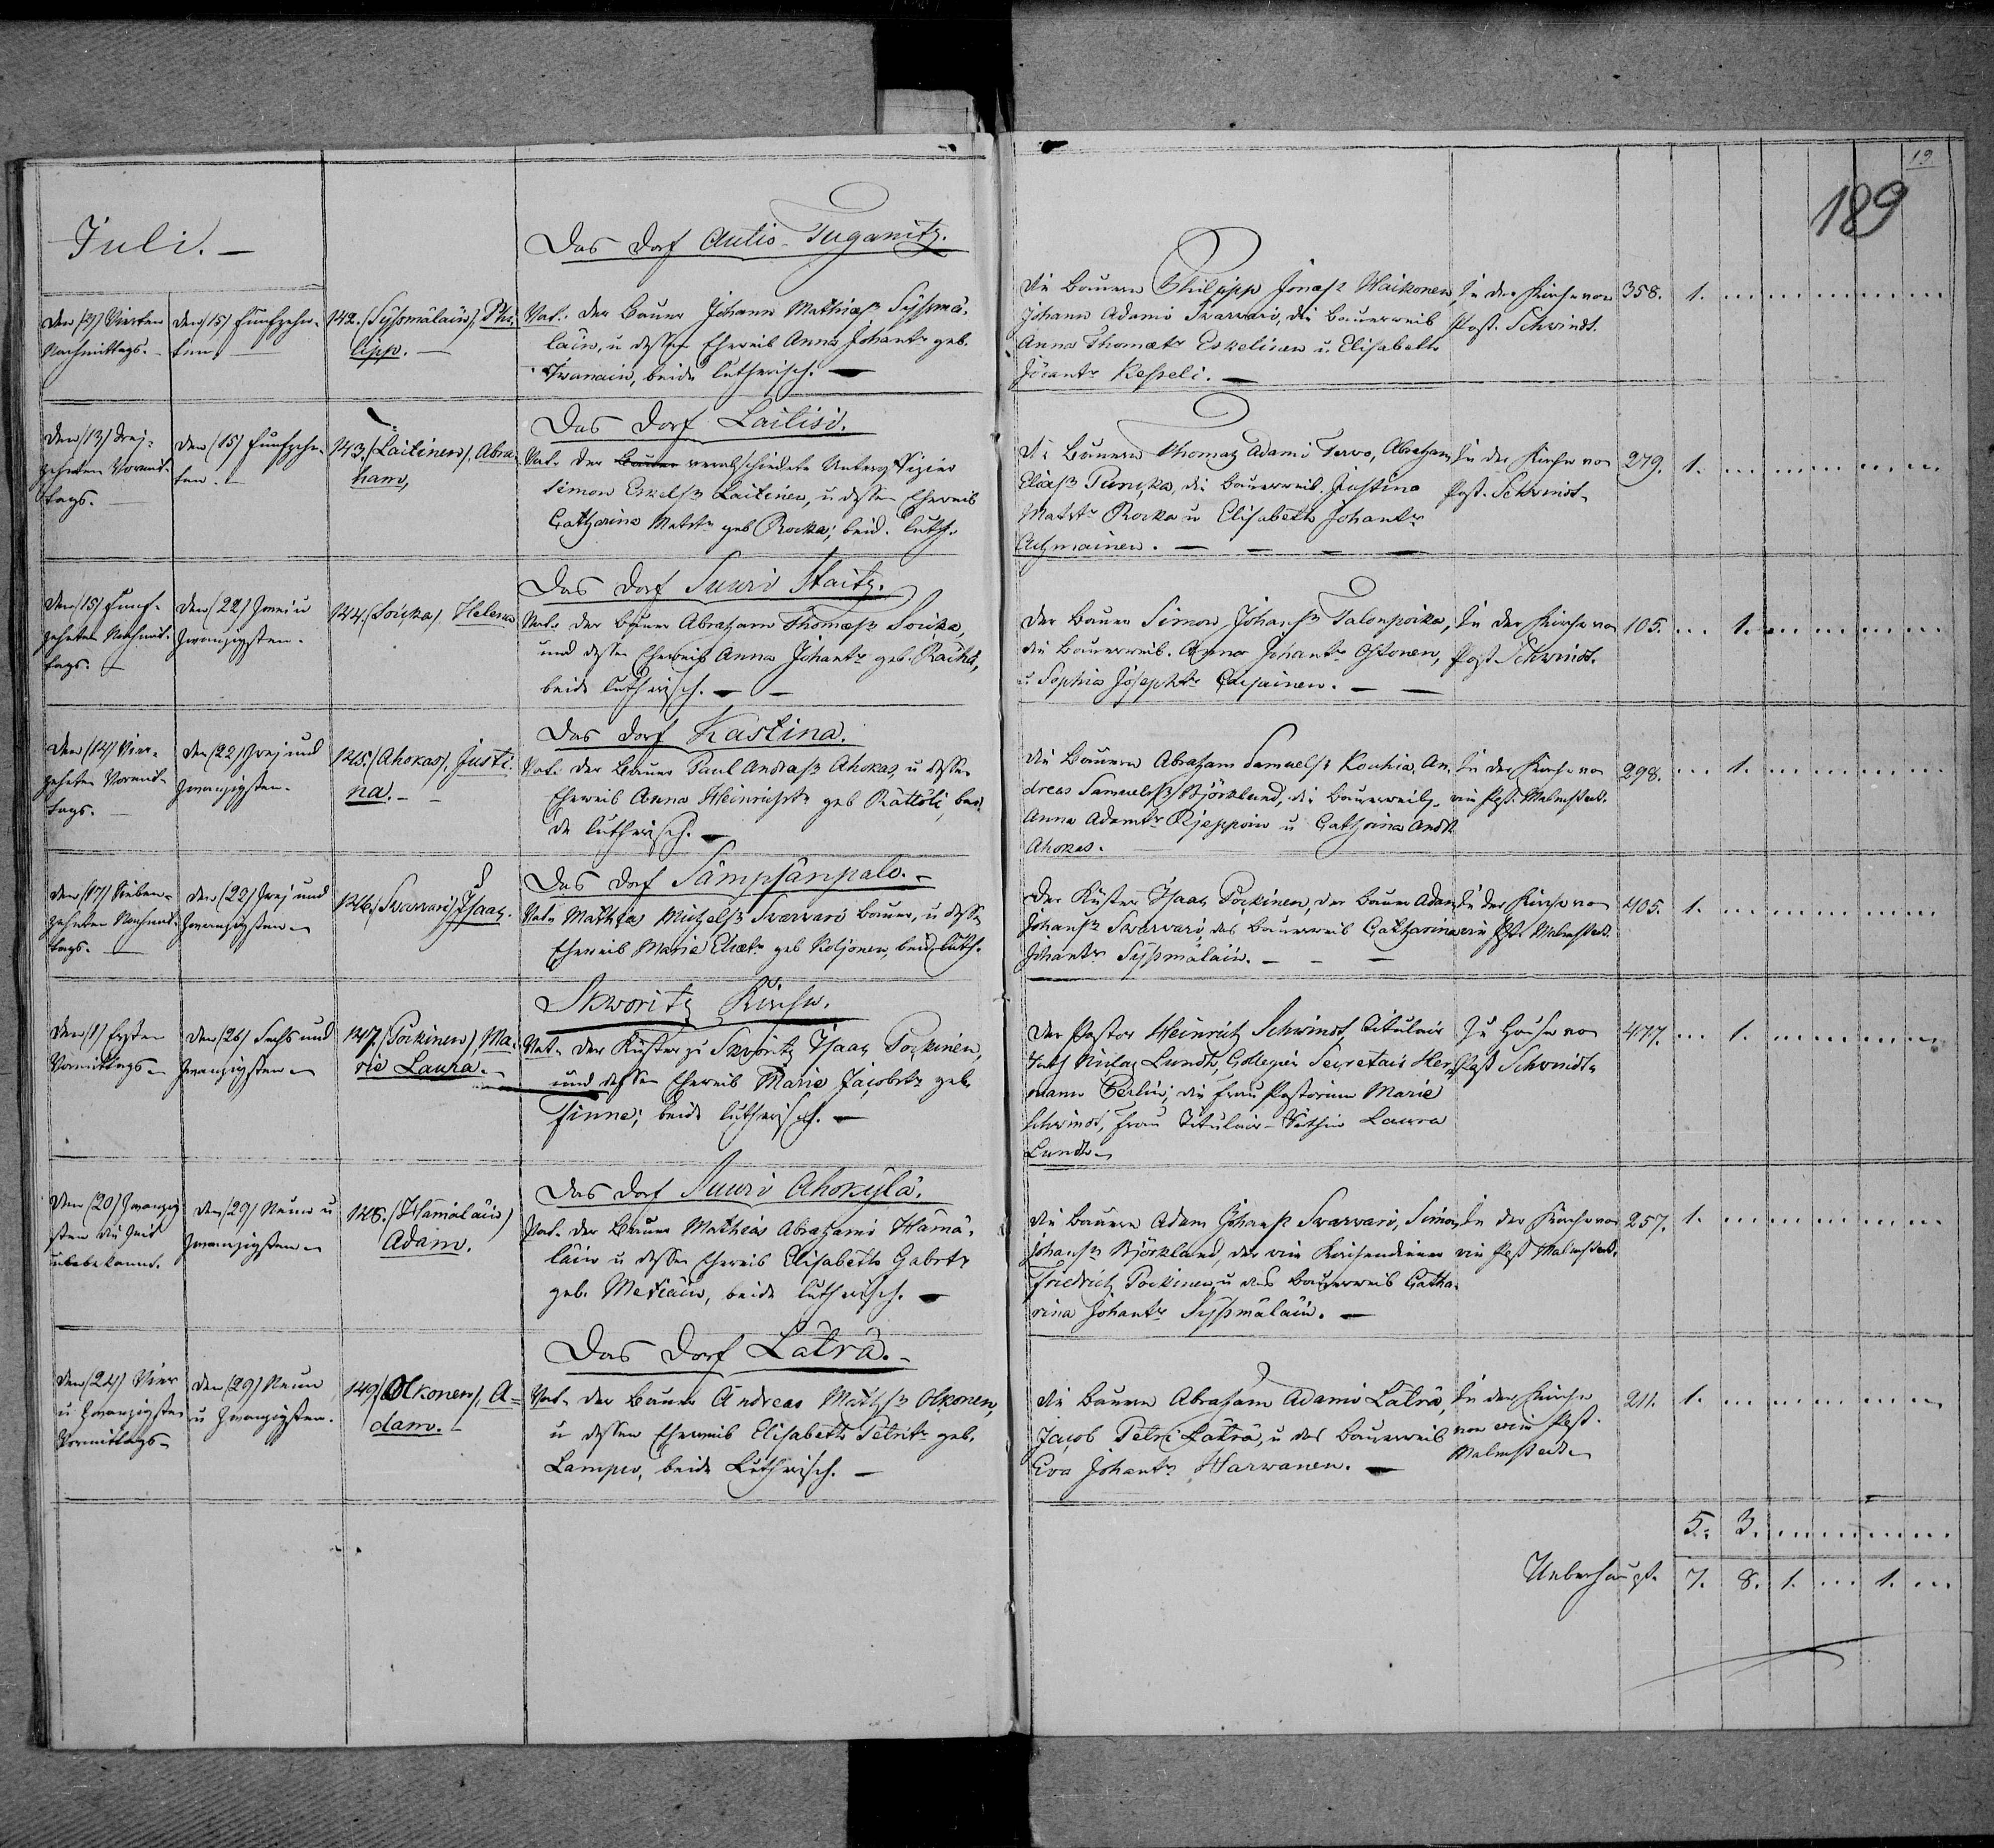 19
189
Juli. —
Das Dorf Autio-Tuganitz.
den (4) Vierten
Nachmittags. —
den (15) Funfzehn-
ten. —
142. (Syßmäläin), Phi-
lipp. —
Vat. der Bauer Johann Mathiaß Syßmä-
läin, u dessen Eheweib Anna Johantr geb.
Iwanain, beide lutherisch. —
Die Bauern Philipp Jonaß Waikonen,
Johann Adami Swarvari, die Bauerweib
Anna Thomætr Eskelinen u Elisabeth
Jörantr Kesseli. —
In der Kirche von
Past. Schwindt.
358. 1.
Das Dorf Lailisi.
den (13) Drei-
zehnten Vormit-
tags. —
den (15) Funfzehn-
ten. —
143. (Laitinen), Abra-
ham,
Vat. der Bauer verabschiedete Unteroffizier
Simon Eskelßn Laitinen, u dessen Eheweib
Catharina Matstr geb Rocka; beid. luth.
Die Bauern Thomas Adami Terwo, Abraham
Eliaßn Puncka, die Bauerweib. Justina
Matstr Rocka u Elisabeth Johantr
In der Kirche von
Past. Schwindt
279. 1.
Das Dorf Suuri Staitz.
den (15) Funf-
zehnten Nachmit-
tags. —
den (22) Zwei u
Zwanzigsten.
144. (Soicka) Helena
Vat. der Bauer Abraham Thomæßn Soicka,
und dessen Eheweib Anna Johantr geb. Raiha,
beide lutherisch. — —
Der Bauer Simon Johanßn Talonpoika,
die Bauerweib. Anna Johantr Ostonen,
u Sophia Josephtr
In der Kirche von
Past Schwindt.
105. 1.
Das Dorf Kastina.
den (14) Vier-
zehnten Vormit-
tags. —
den (22) Zwei und
Zwanzigsten.
145. (Ahokas), Justi-
na. —
Vat. der Bauer Paul Andraßn Ahokas u dessen
Eheweib Anna Heinrichstr geb Rättöli, bei-
de lutherisch. —
Die Bauern Abraham Samuelßn Kouhia, An-
dreas Samuelßn Björklund, die Bauerweib.
Anna Adamtr u Catharina Andtr
Ahokas.
In der Kirche von
vic Past. Malmstedt.
298. 1.
Das Dorf Sämpsänpalo. —
den (17) Sieben-
zehnten Nachmit-
tags. —
den (22) Zwei und
Zwanzigsten —
146. (Swarvari) Isaac.
Vat. Mathias Michelßn Swarvari Bauer, u dessen
Eheweib Maria Eliætr geb Koljonen, beid luth.
Der Küster Isaac Pockinen, der Bauer Adam
Johanßn Swarvari, das Bauerweib Catharina
Johantr Syßmäläin. — — —
In der Kirche von
vic Past. Malmstedt.
405. 1.
Skworitz Kirche.
den (1) Ersten
Vormittags —
den (26) Sechs und
Zwanzigsten —
147. (Pockinen), Ma-
rie Laura. —
Vat. der Küster zu Skworitz Isaac Pockinen,
und dessen Eheweib Marie Jacobstr geb.
Finne; beide lutherisch. —
Der Pastor Heinrich Schwindt, Titulair
Rath Nicolay Lundt, Collegien Secretair Her-
mann Berlin; die Frau Pastorinn Marie
Schwindt, Frau Titulair-Räthin Laura
Lundt —
Zu Hause von
Past Schwindt.
477. 1.
Das Dorf Suuri Ahokylä.
den (20) Zwanzig
sten die Zeit
unbekannt.
den (29) Neun u
Zwanzigsten —
148. (Hämäläin)
Adam.
Vat. der Bauer Mathias Abrahami Hämä-
läin u dessen Eheweib Elisabeth Gabrtr
geb. Meriäin, beide lutherisch. —
Die Bauern Adam Johanßn Swarvari, Simon
Johanßn Björklund, der vice Kirchendiener
Friedrich Pockinen u das Bauerweib Catha-
rina Johantr Syßmäläin. —
In der Kirche von
vic Past Malmstedt.
257. 1.
Das Dorf Läträ. —
den (24) Vier
u Zwanzigsten
Vormittags —
den (29) Neun
u Zwanzigsten.
149. (Olkonen), A-
dam. —
Vat. der Bauer Andreas Mathßn Olkonen,
u dessen Eheweib Elisabeth Petritr geb.
Lampio, beide Lutherisch. —
Die Bauern Abraham Adami Läträ,
Jacob Petri Läträ, u das Bauerweib
Eva Johantr Harwanen. —
In der Kirche
von vice Past.
Malmstedt —
211. 1.
5. 3.
Ueberhaupt. 7. 8. 1. ... 1. ...